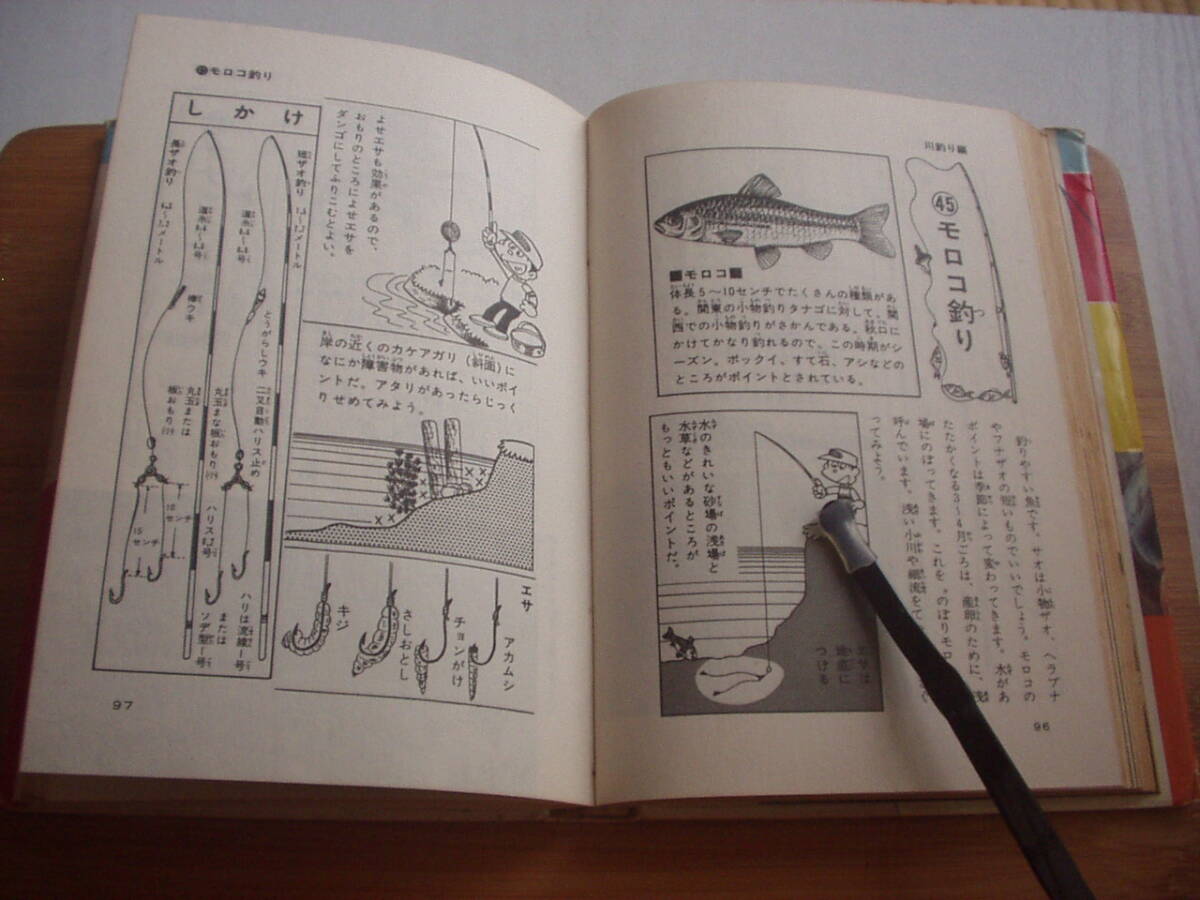 川釣り編
㊺モロコ釣り
■モロコ■
体長5〜10センチでたくさんの種類があ
る。関東の小物釣りタナゴに対して、関
西での小物釣りがさかんである。秋口に
かけてかなり釣れるので、この時期がシ
ーズン。ボックイ、すて石、アシなどの
ところがポイントとされている。
釣りやすい魚です。サオは小物ザオ、ヘラブナ
やフナザオの短いものでいいでしょう。モロコの
ポイントは季節によって変わってきます。水があ
たたかくなる3〜4月ごろは、産卵のために、浅
場にのぼってきます。これを〝のぼりモロ
呼んでいます。浅い小川や細流をて
ってみよう。
水のきれいな砂場の浅場と
水草などがあるところが
もっともいいポイントだ。
エサは
地底に
つける
96
モロコ釣り
よせエサも効果があるので、
おもりのところによせエサを
ダンゴにしてふりこむとよい。
岸の近くのカケアガリ(斜面)に
なにか障害物があれば、いいポイ
ントだ。アタリがあったらじっく
りせめてみよう。
エサ
アカムシ
チョンがけ
さしおとし
キジ
しかけ
短ザオ釣り
メートル
道糸
とうがらしウキ
二又自動ハリス止め
丸玉まな板おもり
ハリス
ハリは流線1号
または
ソデ型1号
長ザオ釣り
メートル
道糸
棒ウキ
丸玉または
板おもり
10
センチ
15
センチ
97